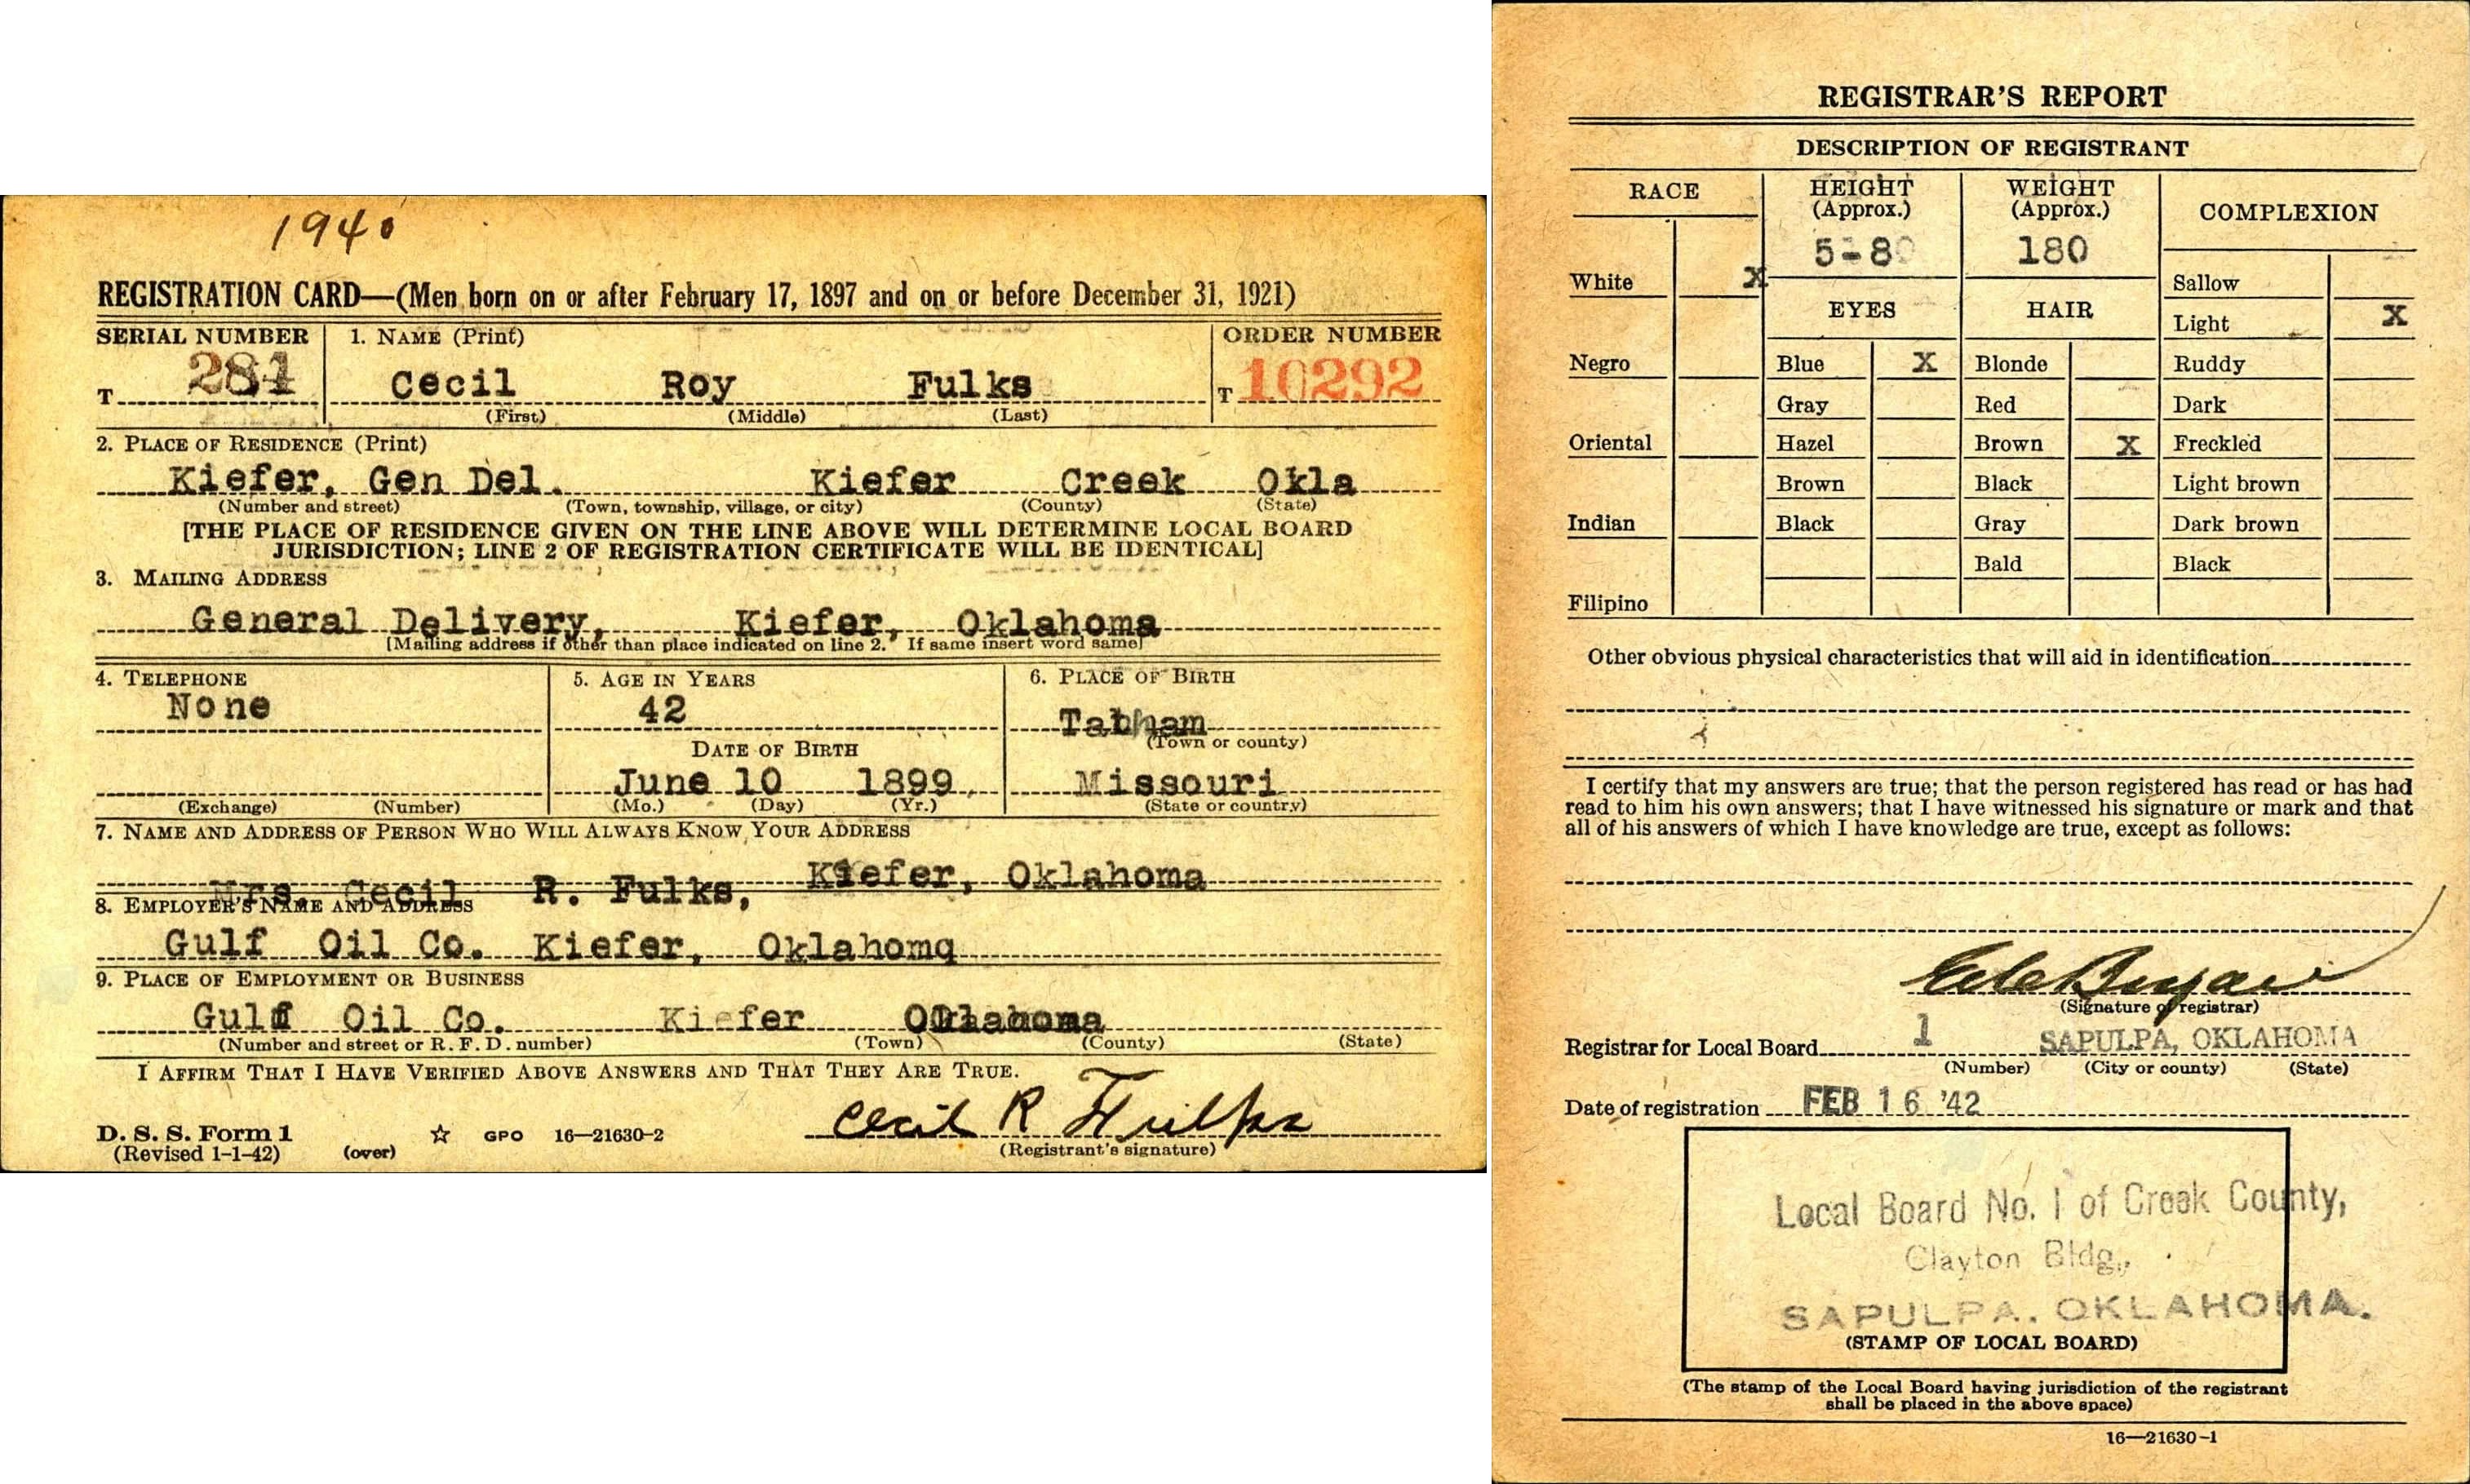 1940
REGISTRATION CARD—(Men born on or after February 17, 1897 and on or before December 31, 1921)
SERIAL NUMBER 1. NAME (Print) ORDER NUMBER
T 284 Cecil Roy Fulks T 10292
(First) (Middle) (Last)
2. PLACE OF RESIDENCE (Print)
Kiefer, Gen Del. Kiefer Creek Okla
(Number and street) (Town, township, village, or city) (County) (State)
[THE PLACE OF RESIDENCE GIVEN ON THE LINE ABOVE WILL DETERMINE LOCAL BOARD
JURISDICTION; LINE 2 OF REGISTRATION CERTIFICATE WILL BE IDENTICAL]
3. MAILING ADDRESS
General Delivery, Kiefer, Oklahoma
[Mailing address if other than place indicated on line 2. If same insert word same]
4. TELEPHONE 5. AGE IN YEARS 6. PLACE OF BIRTH
None 42
(Town or county)
DATE OF BIRTH
June 10 1899 Missouri
(Exchange) (Number) (Mo.) (Day) (Yr.) (State or country)
7. NAME AND ADDRESS OF PERSON WHO WILL ALWAYS KNOW YOUR ADDRESS
Mrs. Cecil R. Fulks, Kiefer, Oklahoma
8. EMPLOYER'S NAME AND ADDRESS
Gulf Oil Co. Kiefer, Oklahomq
9. PLACE OF EMPLOYMENT OR BUSINESS
Gulf Oil Co. Kiefer Oklahoma
(Number and street or R. F. D. number) (Town) (County) (State)
I AFFIRM THAT I HAVE VERIFIED ABOVE ANSWERS AND THAT THEY ARE TRUE.
Cecil R Fulks
D. S. S. Form 1
(Revised 1-1-42) (over) ☆ GPO 16—21630-2 (Registrant's signature)
REGISTRAR'S REPORT
DESCRIPTION OF REGISTRANT
RACE HEIGHT (Approx.) WEIGHT (Approx.) COMPLEXION
5-8 180
White X Sallow
EYES HAIR
Light X
Negro Blue X Blonde Ruddy
Gray Red Dark
Oriental Hazel Brown X Freckled
Brown Black Light brown
Indian Black Gray Dark brown
Bald Black
Filipino
Other obvious physical characteristics that will aid in identification
I certify that my answers are true; that the person registered has read or has had
read to him his own answers; that I have witnessed his signature or mark and that
all of his answers of which I have knowledge are true, except as follows:
(Signature of registrar)
Registrar for Local Board 1 SAPULPA, OKLAHOMA
(Number) (City or county) (State)
Date of registration FEB 16 '42
Local Board No. 1 of Creek County,
Clayton Bldg.,
SAPULPA, OKLAHOMA.
(STAMP OF LOCAL BOARD)
(The stamp of the Local Board having jurisdiction of the registrant
shall be placed in the above space)
16—21630-1